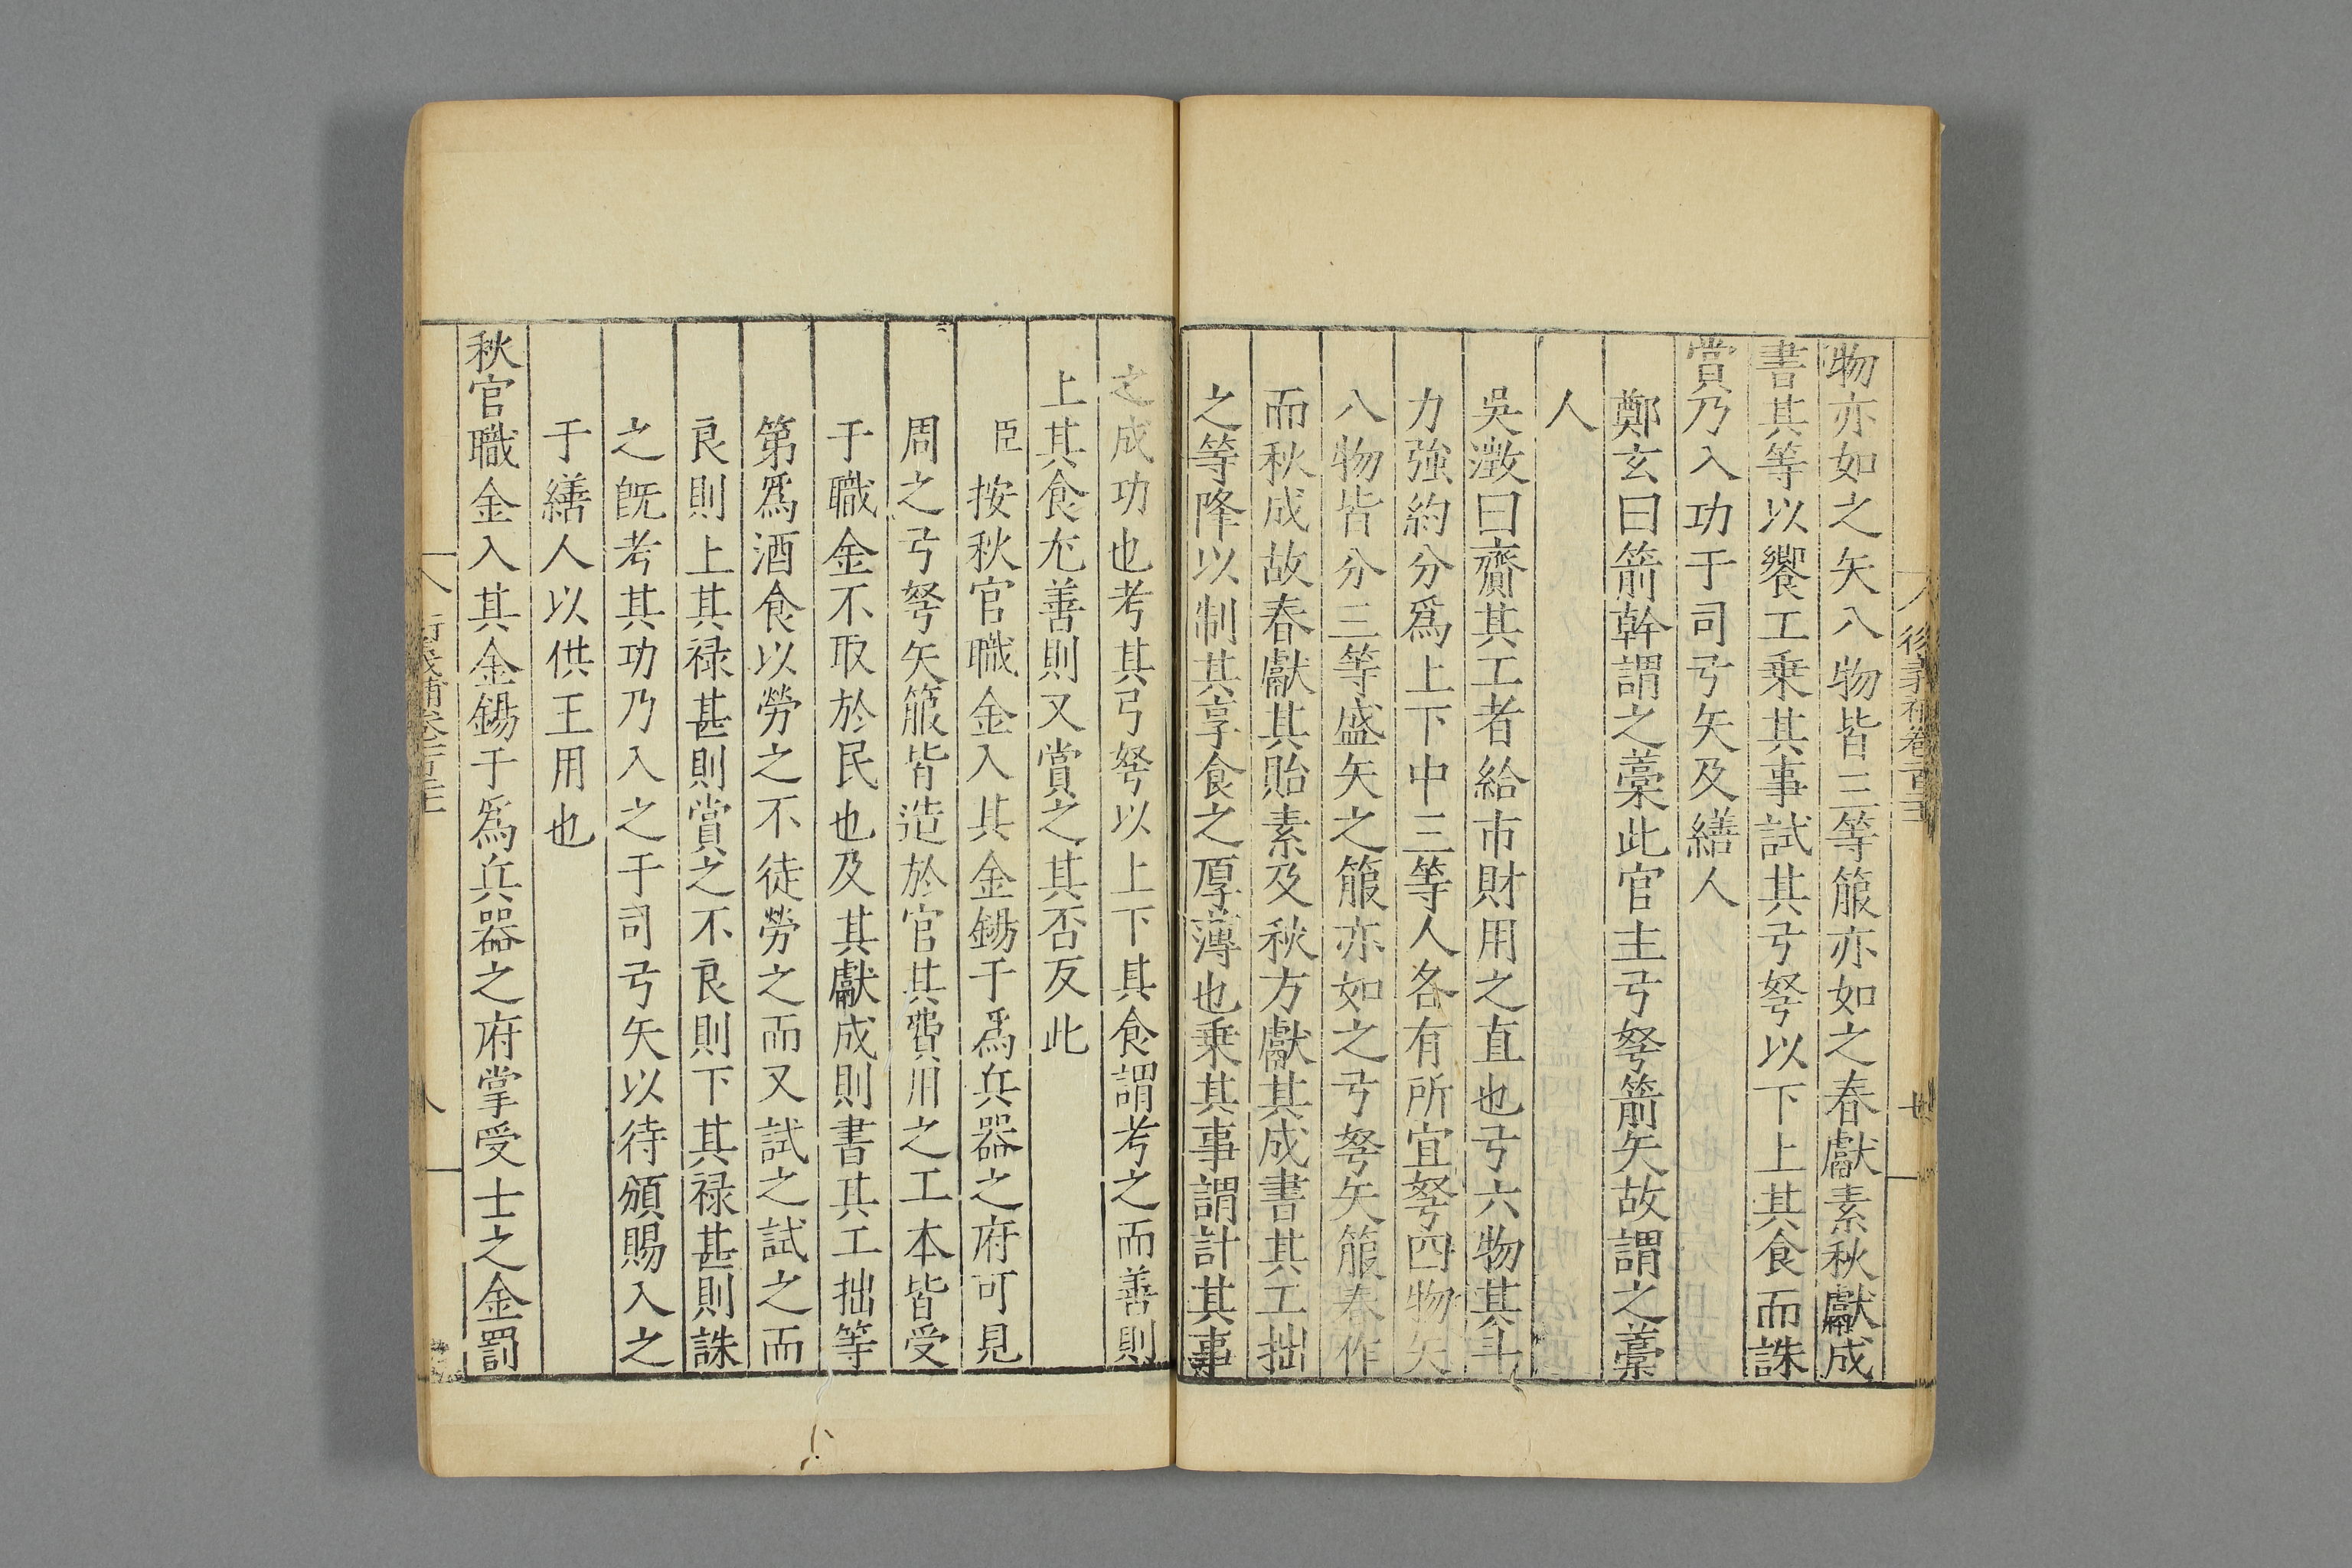 物亦如之矢八物皆三等箙亦如之春獻素秋獻成
書其等以饗工乗其事試其弓弩以下上其食而誅
賞乃入功于司弓矢及繕人
鄭玄曰箭幹謂之藁此官主弓弩箭矢故謂之藁
人
吳澂曰齎其工者給市財用之直也弓六物其
力強約分爲上下中三等人各有所宜弩四物矢
八物皆分三等盛矢之箙亦如之弓弩矢箙春作
而秋成故春獻其貽素及秋方獻其成書其工拙
之等降以制其享食之厚薄也乗其事謂計其事
之成功也考其弓弩以上下其食謂考之而善則
上其食尤善則又賞之其否反此
臣按秋官職金入其金錫于爲兵器之府可見
周之弓弩矢箙皆造於官其費用之工本皆受
于職金不取於民也及其獻成則書其工拙等
第爲酒食以勞之不徒勞之而又試之試之而
良則上其禄甚則賞之不良則下其禄甚則誅
之旣考其功乃入之于司弓矢以待頒賜入之
于繕人以供王用也
秋官職金入其金錫于爲兵器之府掌受士之金罰